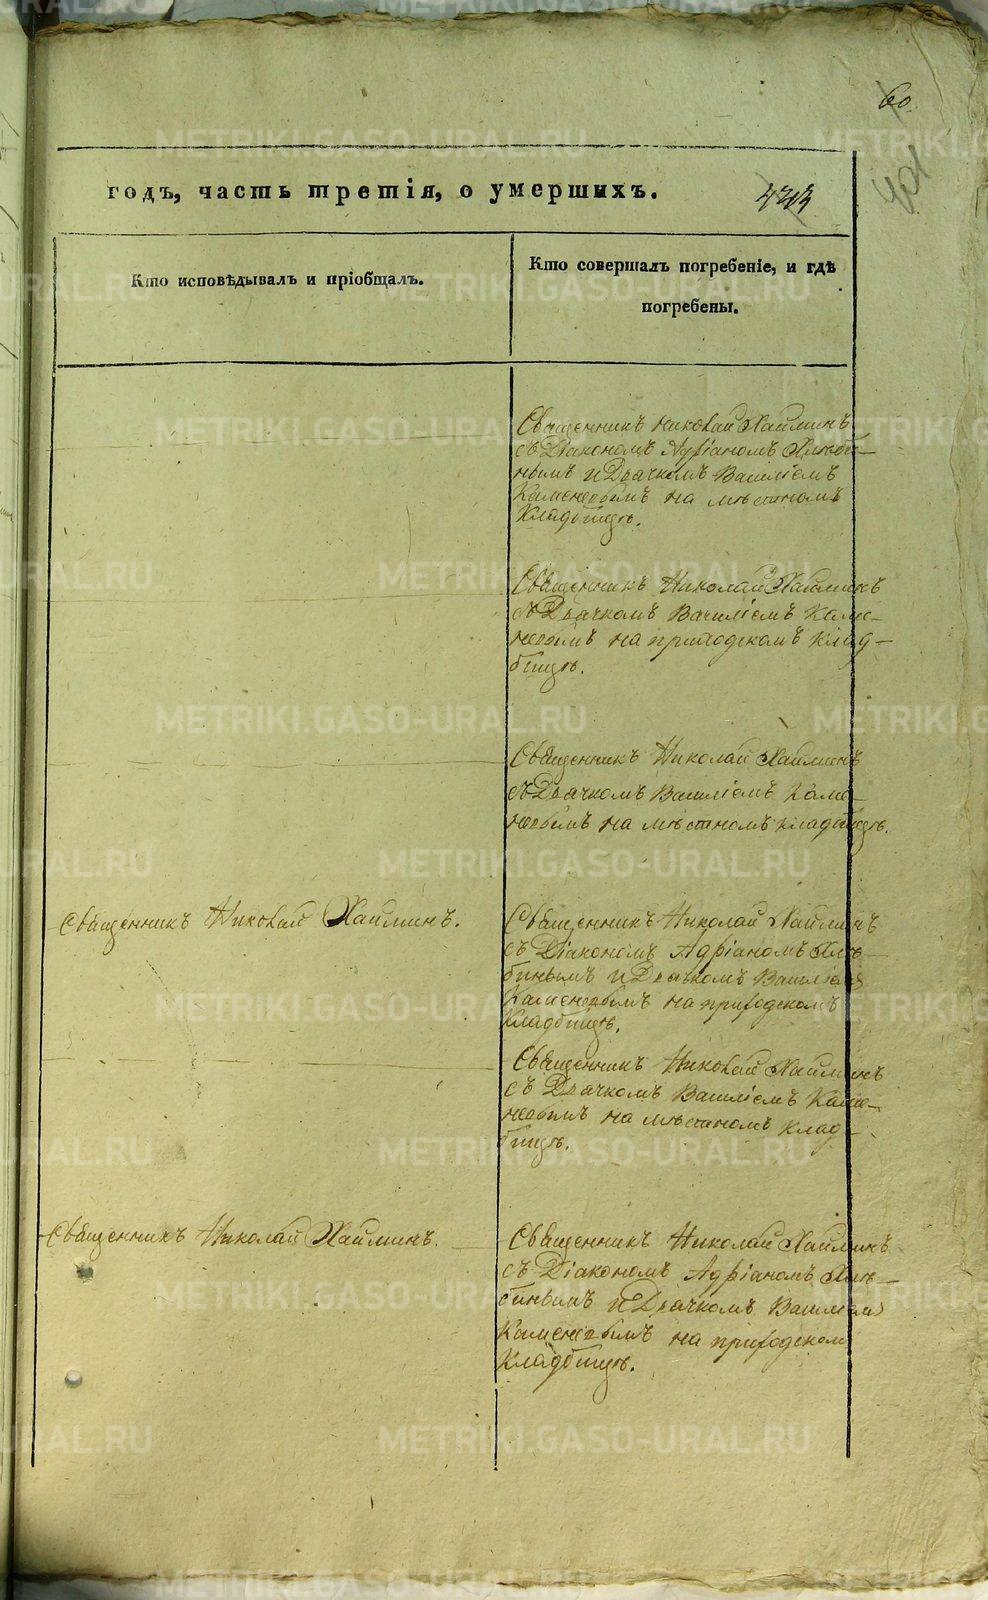 60
401
годъ, часть третія, о умершихъ.
Кто исповѣдывалъ и пріобщалъ.
Кто совершалъ погребеніе, и гдѣ
погребены.
Священникъ Николай Хайминъ
съ Діакономъ Адріаномъ
и Дьячкомъ Василіемъ
на мѣстномъ
кладбищѣ.
Священникъ Николай Хайминъ
съ Дьячкомъ Василіемъ Каме-
невымъ на приходскомъ клад-
бищѣ.
Священникъ Николай Хайминъ
съ Дьячкомъ Василіемъ Каме-
невымъ на мѣстномъ кладбищѣ.
Священникъ Николай Хайминъ.
Священникъ Николай Хайминъ
съ Діакономъ Адріаномъ
и Дьячкомъ Василіемъ
на приходскомъ
кладбищѣ.
Священникъ Николай Хайминъ
съ Дьячкомъ Василіемъ Каме-
невымъ на мѣстномъ клад-
бищѣ.
Священникъ Николай Хайминъ.
Священникъ Николай Хайминъ
съ Діакономъ Адріаномъ
и Дьячкомъ Василіем
на приходском
кладбищѣ.
METRIKI.GASO-URAL.RU